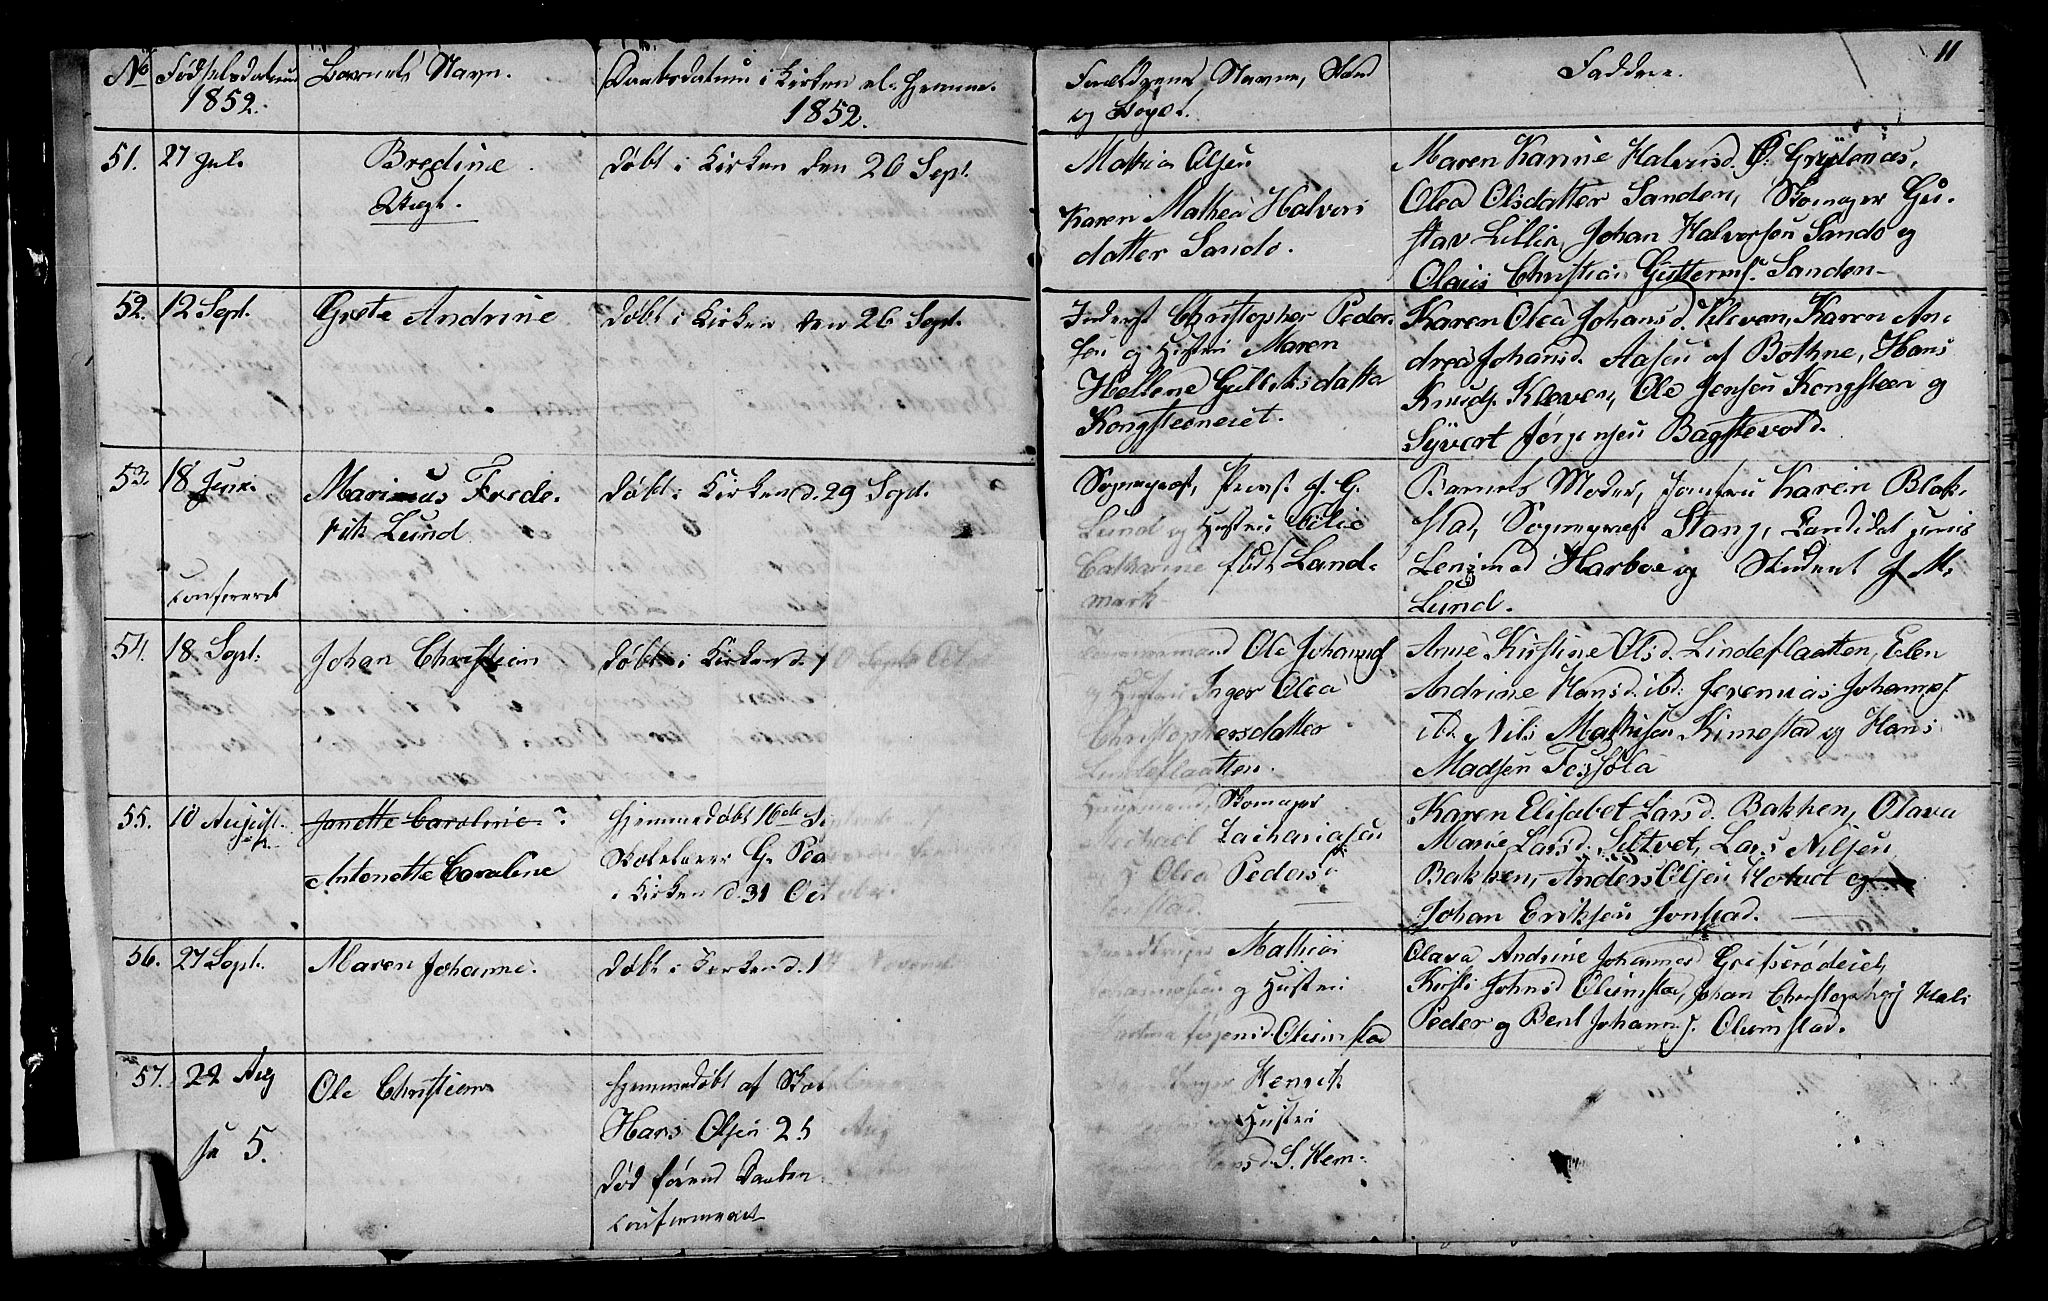 11
No Fødselsdatum 1852.
Barnets Navn.
Daabsdatum i Kirken el. Hjemme. 1852.
Forældrenes Navne, Stand
og Bopæl.
Faddere.
51. 27 Jul.
Bredine.
Uægt.
Døbt i Kirken den 26 Sept.
Mathia Olsen
Karen Mathea Halvors
datter Sando.
Maren Karine Halvorsd.
Olea Olsdatter Sanden, Skomager Gu-
stav Lillie, Johan Halvorsen Sando og
Olaus Christian Guttorms. Sanden
52. 12 Sept.
Grete Andrine
Døbt i Kirken den 26 Sept.
Inderst Christopher Peder-
sen og Hustru Maren
Hellene Gulliksdatter
Kongsteneiet.
Karen Olea Johansd. Kleven, Karen An-
drea Johansd. Aasen af Bothne, Hans
Knuds. Kleven, Ole Jensen Kongsteen og
Syvert Jørgensen Bagstevold.
53. 18 Juni.
confereret
Marinus Frede-
rik Lund
Døbt i Kirken d. 29 Sept.
Sognepræst, G.
Lund og Hustru
Catharine født Land-
mark
Barnets Moder, Jomfru Karen Blak-
stad, Sognepræst Stang, Candidat juris
Harboe og Student M.
Lund.
54. 18 Sept.
Johan Christian
Døbt i Kirken d. 1
Ole Johannes
og Hustru Inger Olea
Christophersdatter
Lindeflaatten.
Anne Kirstine Olsd. Lindeflaatten, Elen
Andrine Hansd. ibd. Jeremias Johannes.
ibd. Nils Mathisen Kimestad og Hans
Madsen Fossola
55. 10 August
Janette Caroline ?
Antonette Caroline
Hjemmedøbt 16de
Skolelærer G. Ped
i Kirken d. 31 Oct
Skomager
Michael Zachariasen
Olea Peders
Karen Elisabet Larsd. Bakken, Olava
Marie Larsd. Siltvet, Lars Nilsen
Bakken, Anders Olsen Hotvet og
Johan Eriksen Jonstad.
56. 27 Sept.
Maren Johanne.
Døbt i Kirken d. 1 Novemb
Mathias
og Hustru
Olumstad
Olava Andrine Johannesd Grefserødeiet,
Kirsti Johnsd Olumstad, Johan Christophers
Peder og Bent Johanns. Olumstad.
57. 22 Aug
5.
Ole Christian
Hjemmedøbt af Skol
Hans Olsen 25 Aug
Død førend Daaben
confirmeret
Henrik
Hustru
S. Hem-